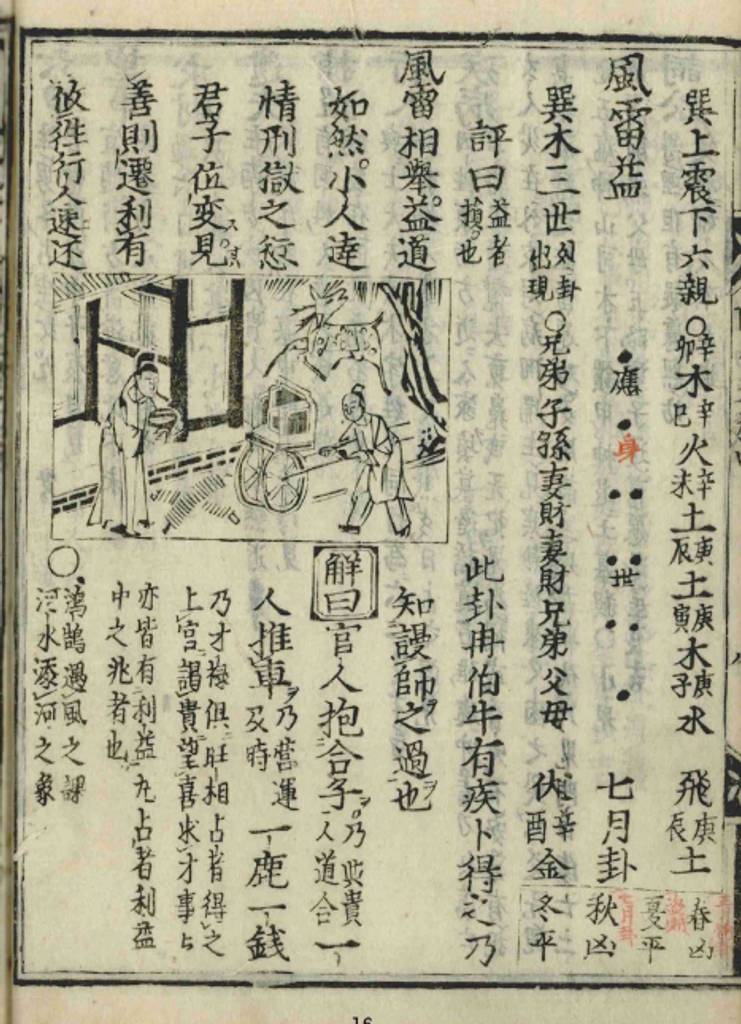 巽上震下六親○辛卯木辛巳火辛未土庚辰土庚寅木庚子水 飛庚辰土
春凶
夏平
風雷益 應 身 世 七月卦
秋凶
巽木三世 外卦出現 ○兄弟子孫妻財妻財兄弟父母 伏辛酉金
冬平
評曰 益者損也
風雷相舉益道
如然小人逹
情刑獄之愆
君子位変見
善則遷利有
攸徃行人速还
此卦冉伯牛有疾卜得之乃
知謾師之過也
解曰 官人抱合子 乃与貴人道合 一
人推車 乃営運及時 一鹿一錢
乃才祿俱旺相占者得之
上官謁貴望喜求才事占
亦皆有利益凡占者利益
中之兆者也
○鴻鵠遇風之課
河水添河之象
16